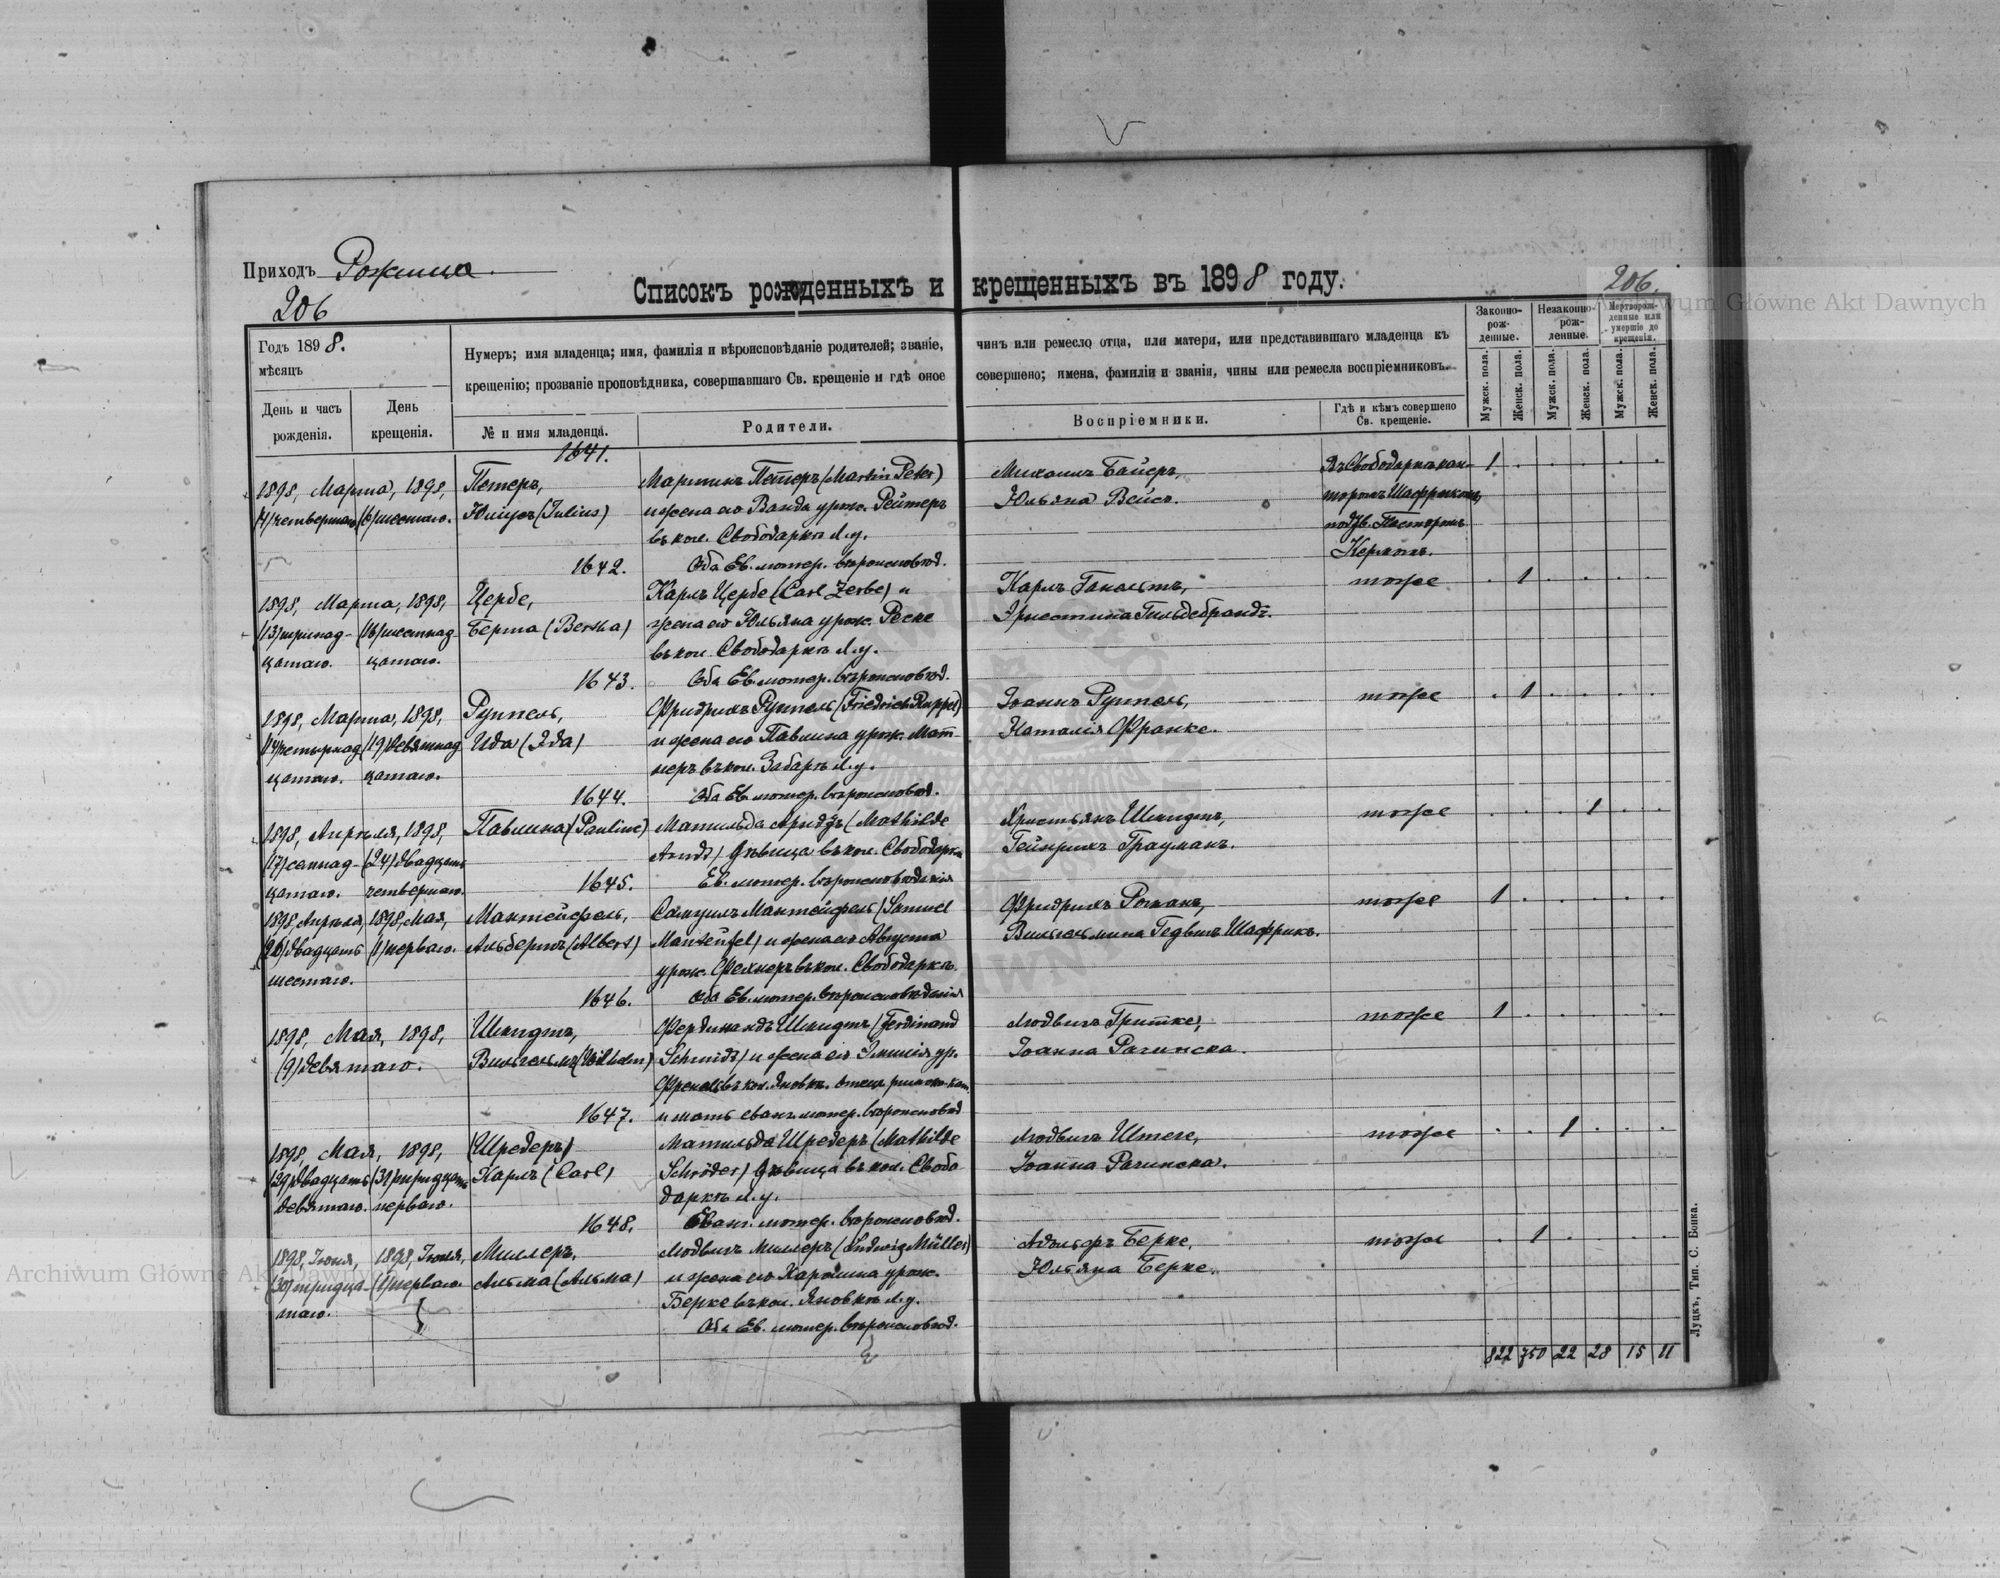 Приходъ Рожище
206
206.
Списокъ рожденныхъ и крещенныхъ въ 1898 году.
Archiwum Główne Akt Dawnych
Годъ 1898.
мѣсяцъ
День и часъ рожденія.
День крещенія.
Нумеръ; имя младенца; имя, фамилія и вѣроисповѣданіе родителей; званіе, чинъ или ремесло отца, или матери, или представившаго младенца къ
крещенію; прозваніе проповѣдника, совершавшаго Св. крещеніе и гдѣ оное совершено; имена, фамиліи и званія, чины или ремесла воспріемниковъ.
№ и имя младенца.
Родители.
Воспріемники.
Гдѣ и кѣмъ совершено Св. крещеніе.
Законно-рож-денные.
Незаконно-рож-денные.
Мертворож-денные или умершіе до крещенія.
Мужск. пола.
Женск. пола.
Мужск. пола.
Женск. пола.
Мужск. пола.
Женск. пола.
1641.
1898, Марта, 1898,
(4) четвертаго (6) шестаго.
Петеръ,
Юліусъ (Julius)
Мартинъ Петеръ (Martin Peter)
и жена его Ванда урож. Рейтеръ
въ кол. Свободаркѣ л.у.
Оба Ев. лютер. вѣроисповѣд.
Михаилъ Байеръ,
Юльяна Вейсъ.
Въ Свободаркѣ кан-
торомъ Шаффрикомъ,
подтв. Пасторомъ
Кермомъ.
1
1642.
1898, Марта, 1898,
(13) тринад- (16) шестнад-
цатаго. цатаго.
Цербе,
Берта (Bertha)
Карлъ Цербе (Carl Zerbe) и
жена его Юльяна урож. Реске
въ кол. Свободаркѣ л.у.
Оба Ев. лютер. вѣроисповѣд.
Эрнестина Гильдебрандъ.
тоже
1
1643.
1898, Марта, 1898,
(14) четырнад (19) девятнад
цатаго. цатаго.
Руппель,
Ида (Ida)
Фридрихъ Руппель (Friedrich Ruppel)
и жена его Павлина урож. Мат-
неръ въ кол. Забара л.у.
Оба Ев. лютер. вѣроисповѣд.
Іоаннъ Руппель,
Наталія Франке.
тоже
1
1644.
1898, Апрѣля, 1898,
(17) семнад- (24) двадцать
цатаго. четвертаго.
Павлина (Pauline)
Матильда Арндтъ (Mathilde
Arndt) дѣвица въ кол. Свободарка
Ев. лютер. вѣроисповѣданія
Христьянъ Шмидтъ,
Гейнрихъ Грауманъ.
тоже
1
1645.
1898, Апрѣля, 1898, Мая,
(26) двадцать (1) перваго.
шестаго.
Мантейфель,
Альбертъ (Albert)
Самуилъ Мантейфель (Samuel
Manteufel) и жена его Августа
урож. Фехнеръ въ кол. Свободаркѣ.
Оба Ев. лютер. вѣроисповѣданія
Фридрихъ Романъ,
Вильгельмина Гедвигъ Шаффрикъ.
тоже
1
1646.
1898, Мая, 1898,
(9) девятаго.
Шмидтъ,
Вильгельмъ (Wilhelm)
Фердинандъ Шмидтъ (Ferdinand
Schmidt) и жена его Эмилія ур.
Френсель въ кол. Яновкѣ. отецъ римско-кат.
и мать еванг. лютер. вѣроисповѣд
Людвигъ Гритке,
Іоанна Рачинска.
тоже
1
1647.
1898, Мая, 1898,
(29) двадцать (31) тридцать
девятаго. перваго.
(Шредеръ)
Карлъ (Carl)
Матильда Шредеръ (Mathilde
Schröder) дѣвица въ кол. Свобо
даркѣ л.у.
Еванг. лютер. вѣроисповѣд.
Людвигъ Штеге,
Іоанна Рачинска.
тоже
1
1648.
1898, Іюня, 1898, Іюля,
(30) тридца- (1) перваго
таго.
Миллеръ,
Альма (Альма)
Людвигъ Миллеръ (Ludwig Müller)
и жена его Каролина урож.
Берке въ кол. Яновкѣ л.у.
Оба Ев. лютер. вѣроисповѣд.
Адольфъ Берке,
Юльяна Берке.
тоже
1
822 750 22 28 15 11
Луцкъ, Тип. С. Бонка.
Archiwum Główne Akt Dawnych